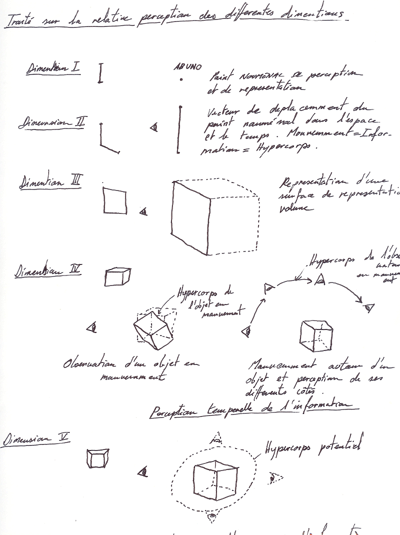 Traité sur la relative perception des differentes dimentions.
Dimention I
AB UNO
Point NOUMENAL de perception
et de representation
Dimension II
Vecteur de deplacement du
point nouménal dans l'espace
et le temps. Mouvement = Infor-
mation = Hypercorps.
Dimention III
Representation d'une
surface de representation
volume
Dimention IV
Hypercorps de
l'objet en
mouvement
Hypercorps de
en mouvem
ent
Observation d'un objet en
mouvement
Mouvement autour d'un
objet et perception de ses
differents cotés
Perception temporelle de l'information
Dimension V
Hypercorps potentiel